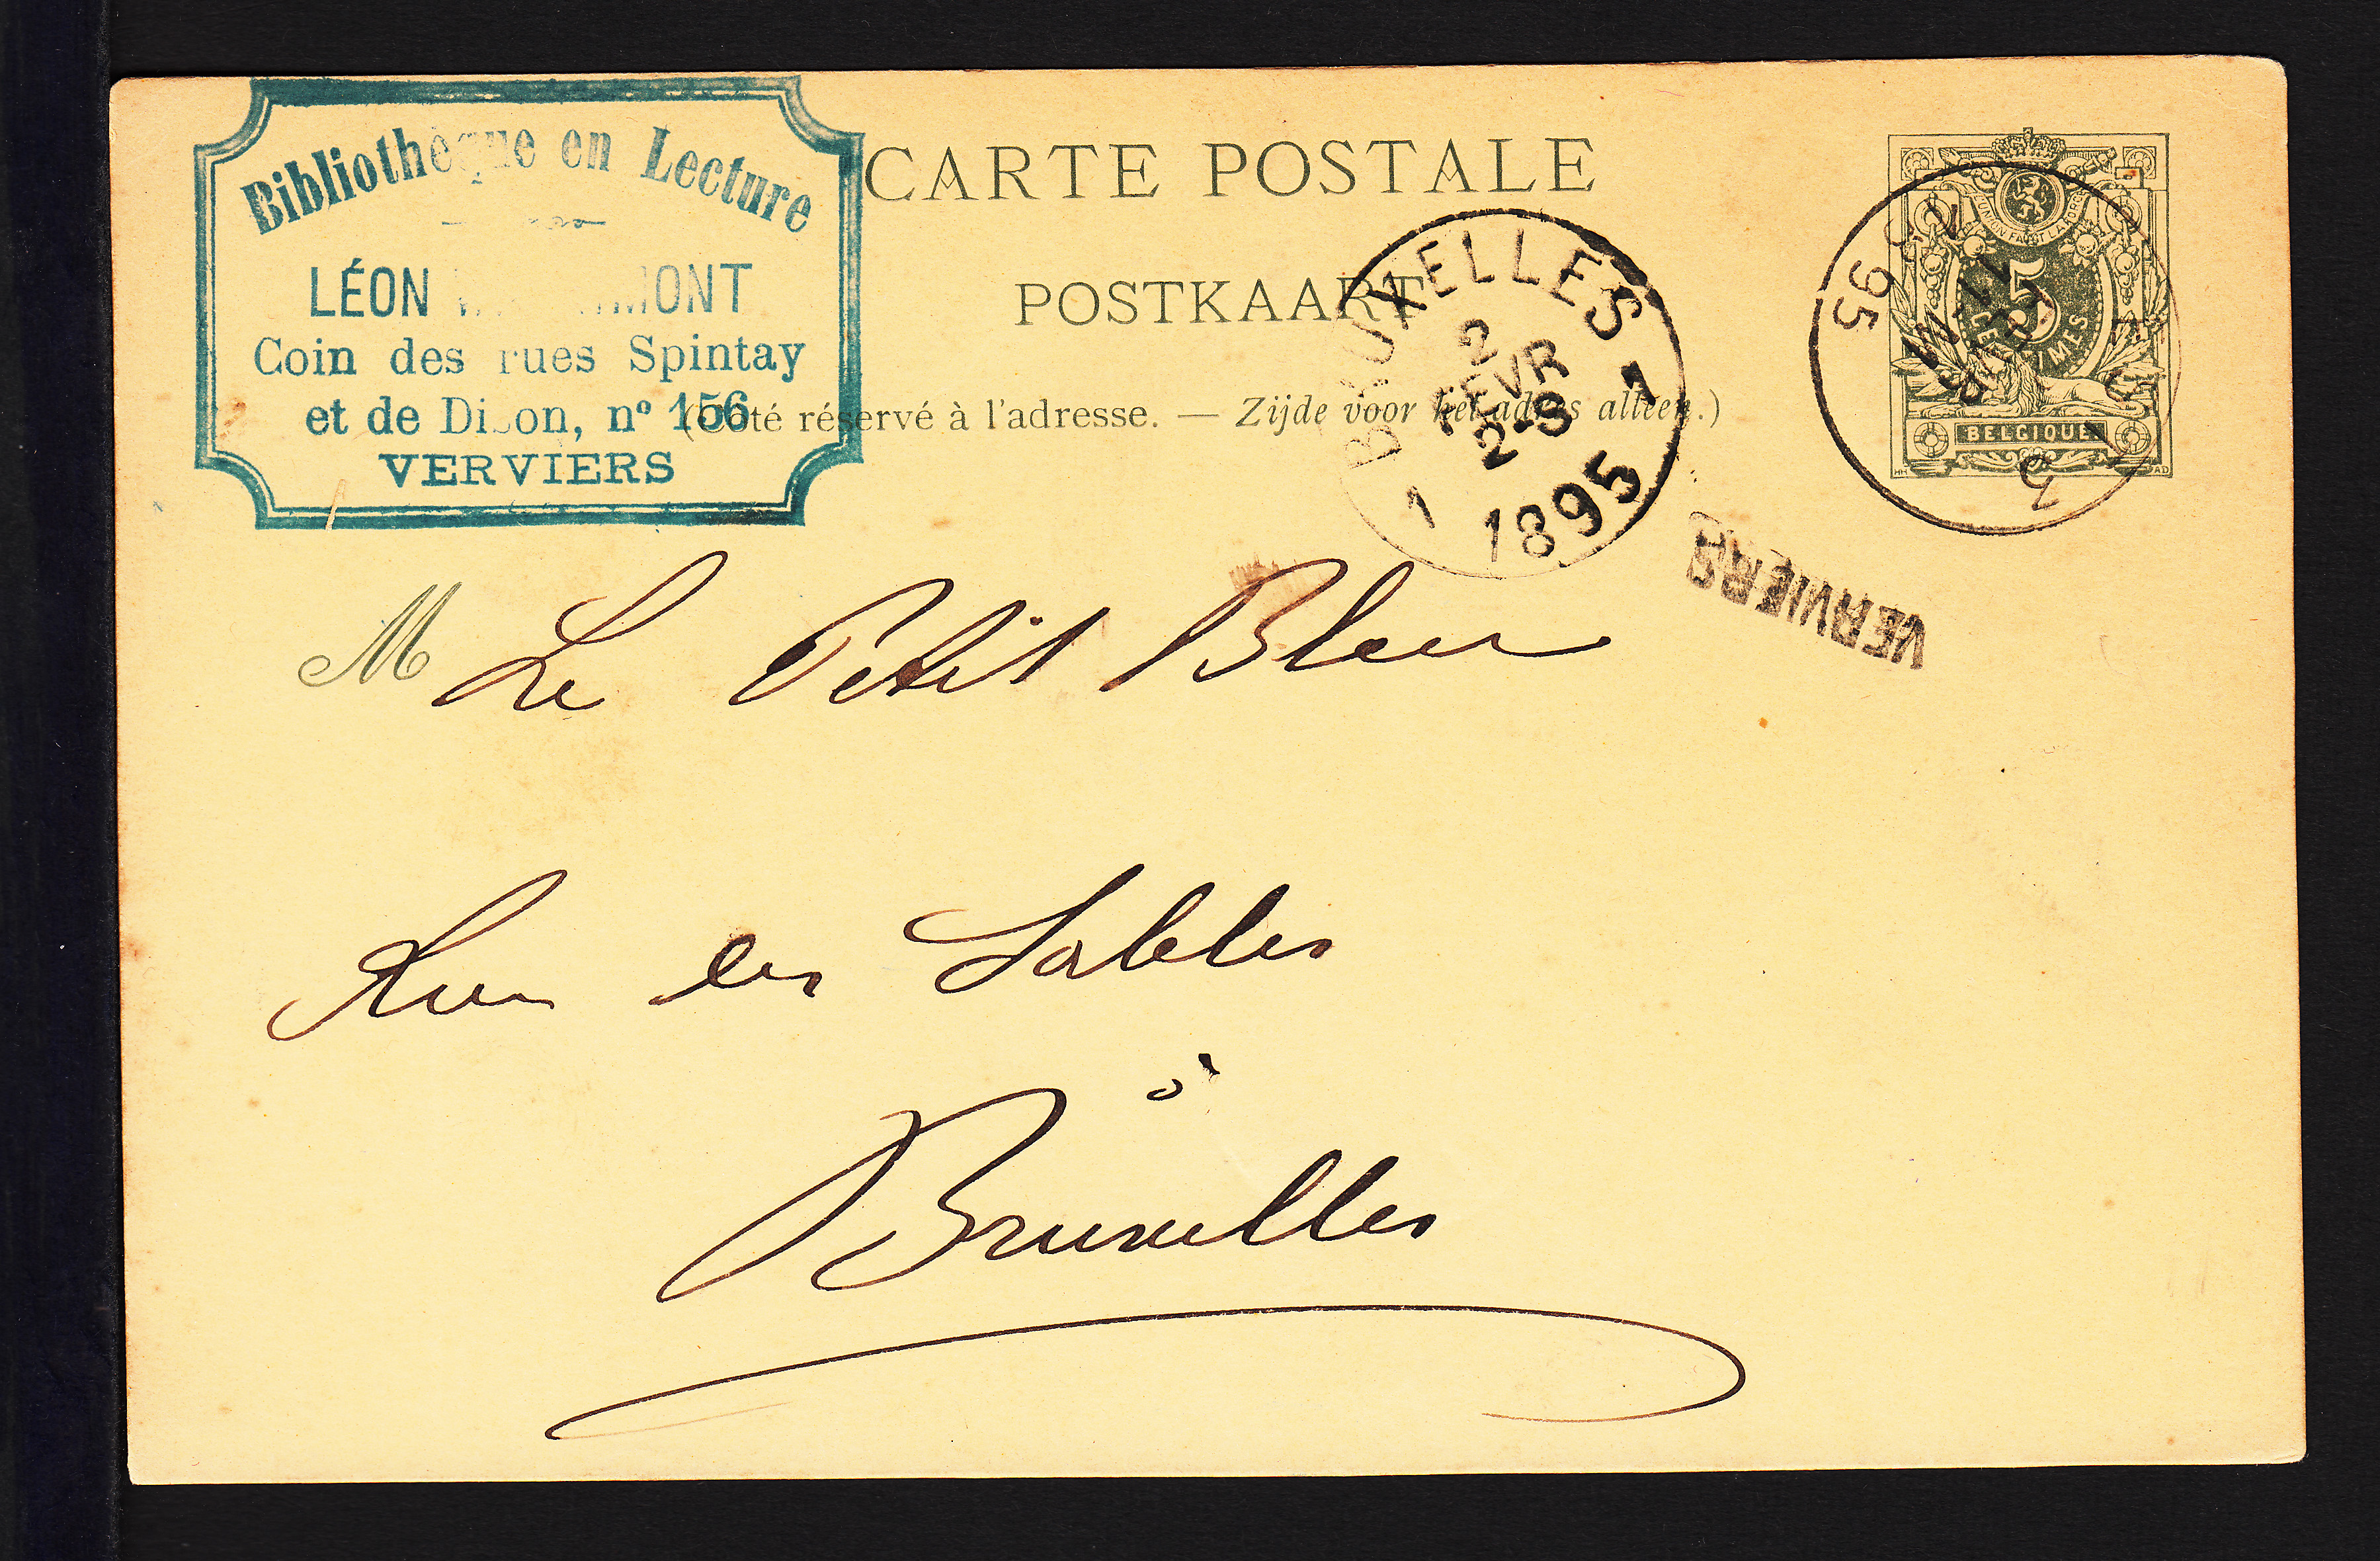 Bibliothèque en Lecture
LÉON
Coin des rues Spintay
et de Dison, nº 156
VERVIERS
CARTE POSTALE
POSTKAART
(Côté réservé à l'adresse. — Zijde voor het adres alleen.)
BRUXELLES
2
FEVR
2-3
1895
1 1
UNION FAIT LA FORCE
5
CENTIMES
BELGIQUE
HH AD
95
VERVIERS
M Le Petit Bleu
Rue des Sables
à
Bruxelles